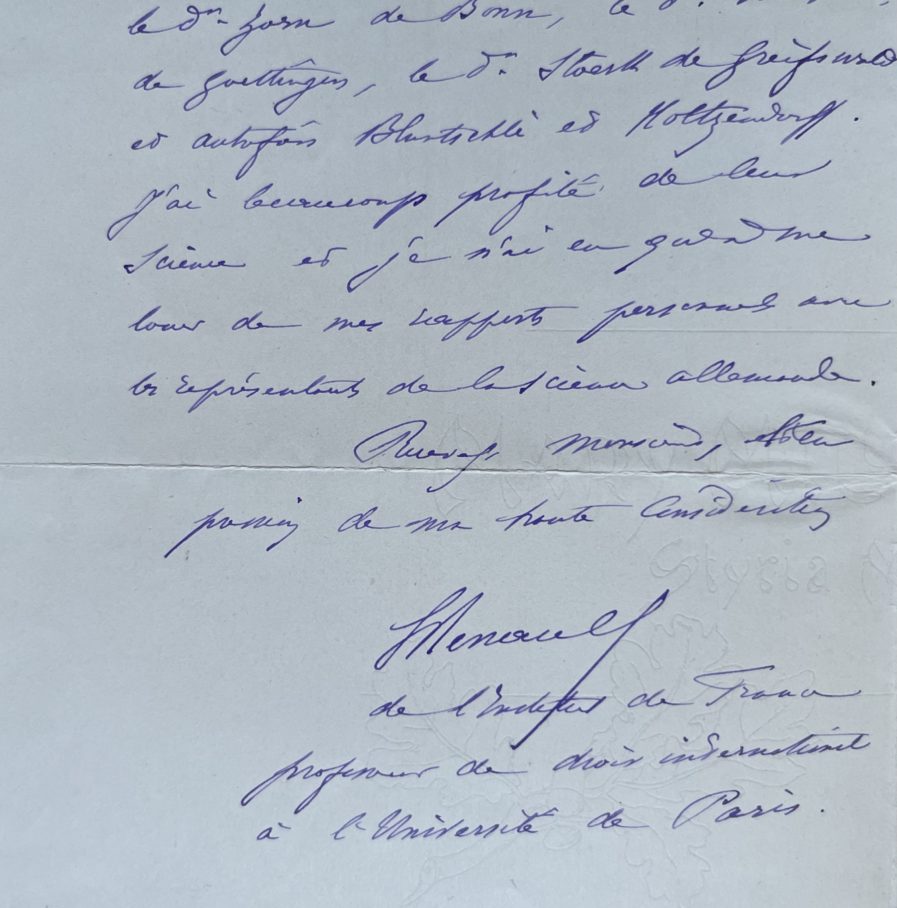 le Dr. Zorn de Bonn, le Dr.
de Goettingen, le Dr. Stoerk de Greifswald
et autrefois Bluntschli et Holtzendorff.
J'ai beaucoup profité de leur
science et je n'ai eu qu'à me
louer de mes rapports personnels avec
les représentants de la science allemande.
Recevez, Monsieur,
de ma haute considération
LRenault
de l'Institut de France
professeur de droit international
à l'Université de Paris.